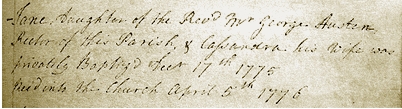 Jane, Daughter of the Revd Mr George Austen
Rector of this Parish, & Cassandra his Wife was
privately Baptz'd Decr 17th 1775
Recd into the Church April 5th 1776